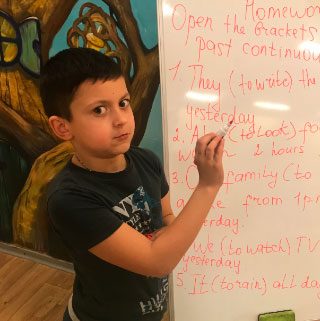 Homewor
Open the brackets
past continuou
1. They (to write) the
yesterday
2. (to look) fo
2 hours
3. family (to
from 1 p
We (to watch) TV
yesterday
5. It (to rain) all da
NY